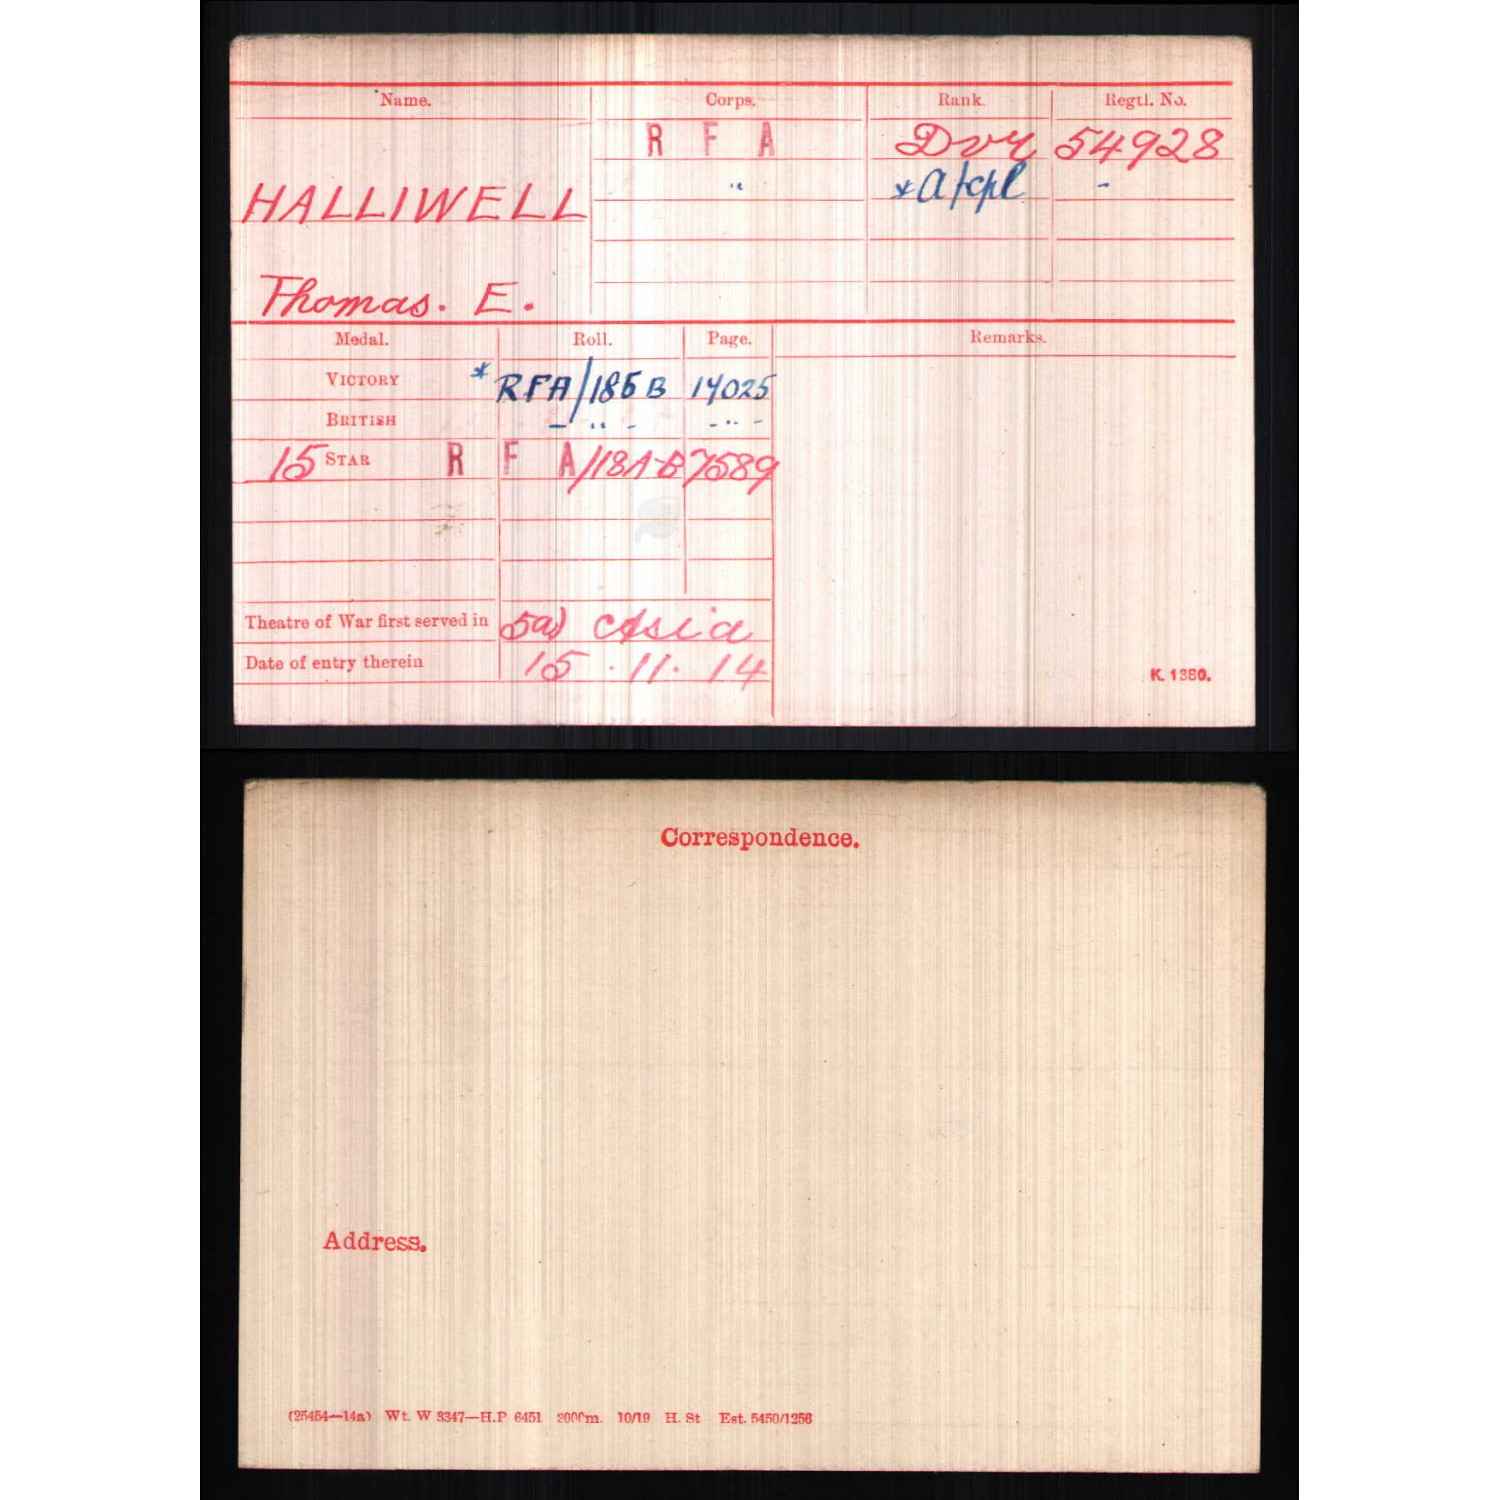 Name. Corps. Rank. Regtl. No.
R F A Dvr 54928
" * A/Cpl -
HALLIWELL
Thomas. E.
Medal. Roll. Page. Remarks.
VICTORY * RFA/185B 14025
BRITISH - " - - " -
15 STAR R F A/18A-B 7589
Theatre of War first served in 5a) Asia
Date of entry therein 15.11.14
K. 1380.
Correspondence.
Address.
(25454—14a) Wt. W 3347—H.P 6451 2000m. 10/19 H. St Est. 5450/1256